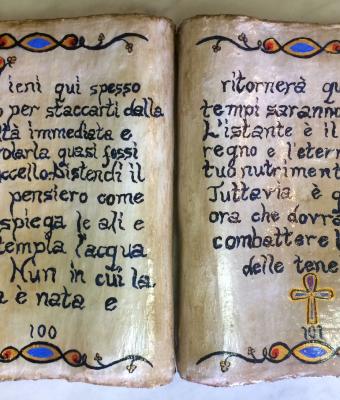 ieni qui spesso
per staccarti dalla
tà immediata e
olarla quasi fossi
ccello. Distendi il
pensiero come
spiega le ali e
templa l'acqua
Nun in cui la
è nata e
100
ritornerà qu
tempi saranno
L'istante è il
regno e l'etern
tuo nutriment
Tuttavia è q
ora che dovrà
combattere l
delle tene
101